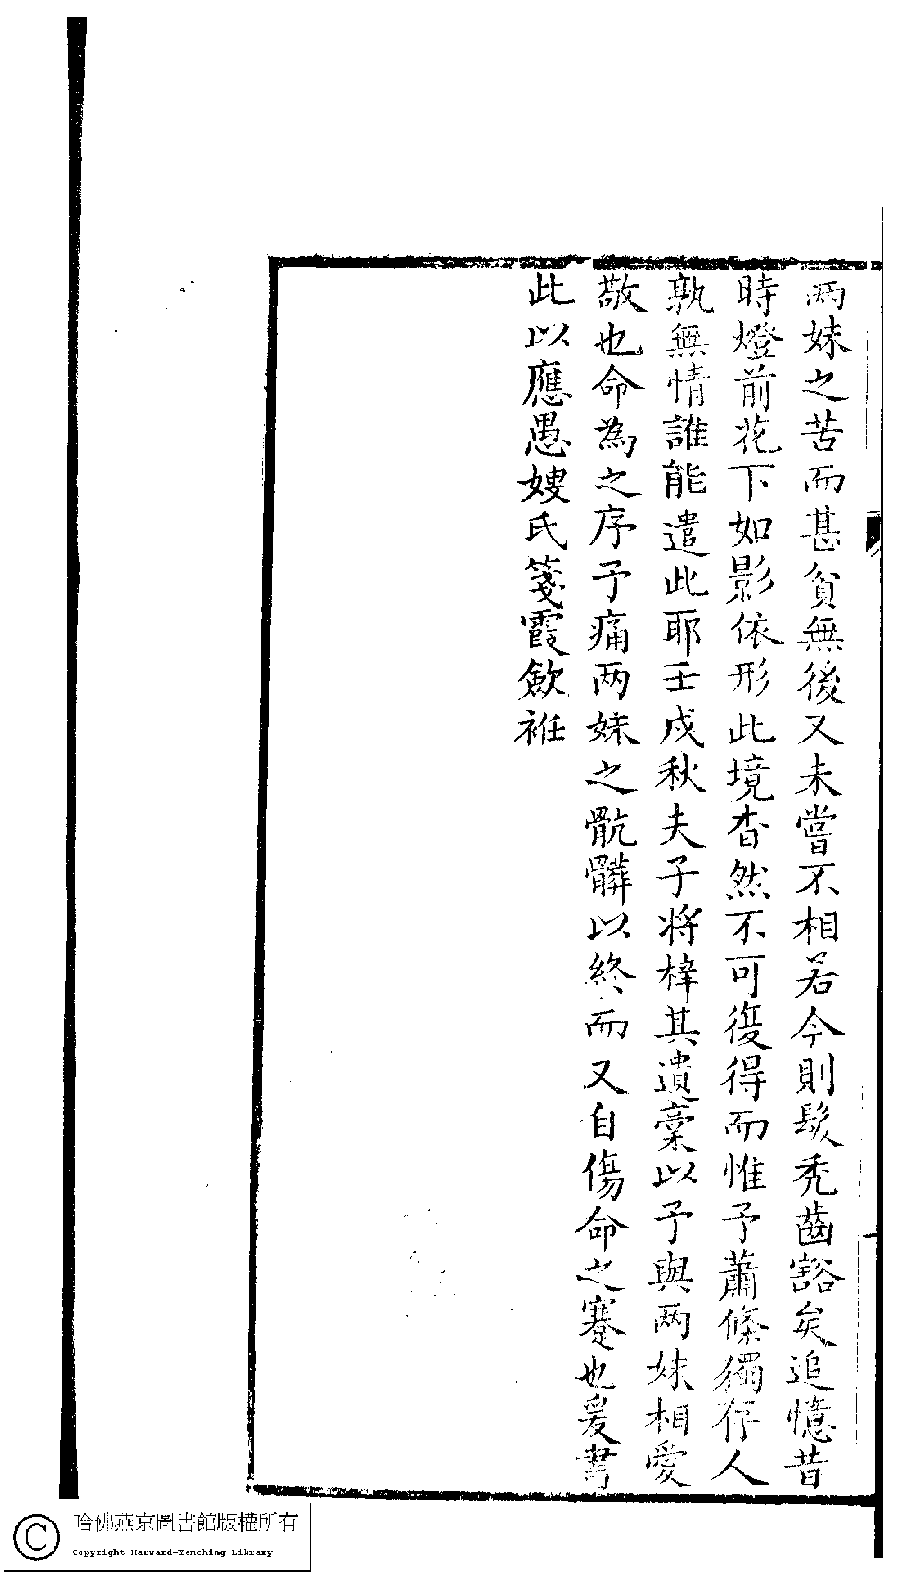 兩妹之苦而甚貧無後又未嘗不相若今則髮禿齒豁矣追憶昔
時燈前花下如影依形此境杳然不可復得而惟予蕭條獨存人
孰無情誰能遣此耶壬戌秋夫子將梓其遺稾以予與兩妹相愛
敬也命為之序予痛兩妹之骯髒以終而又自傷命之蹇也爰書
此以應愚嫂氏箋霞歛袵
哈佛燕京圖書館版權所有
Copyright Harvard-Yenching Library